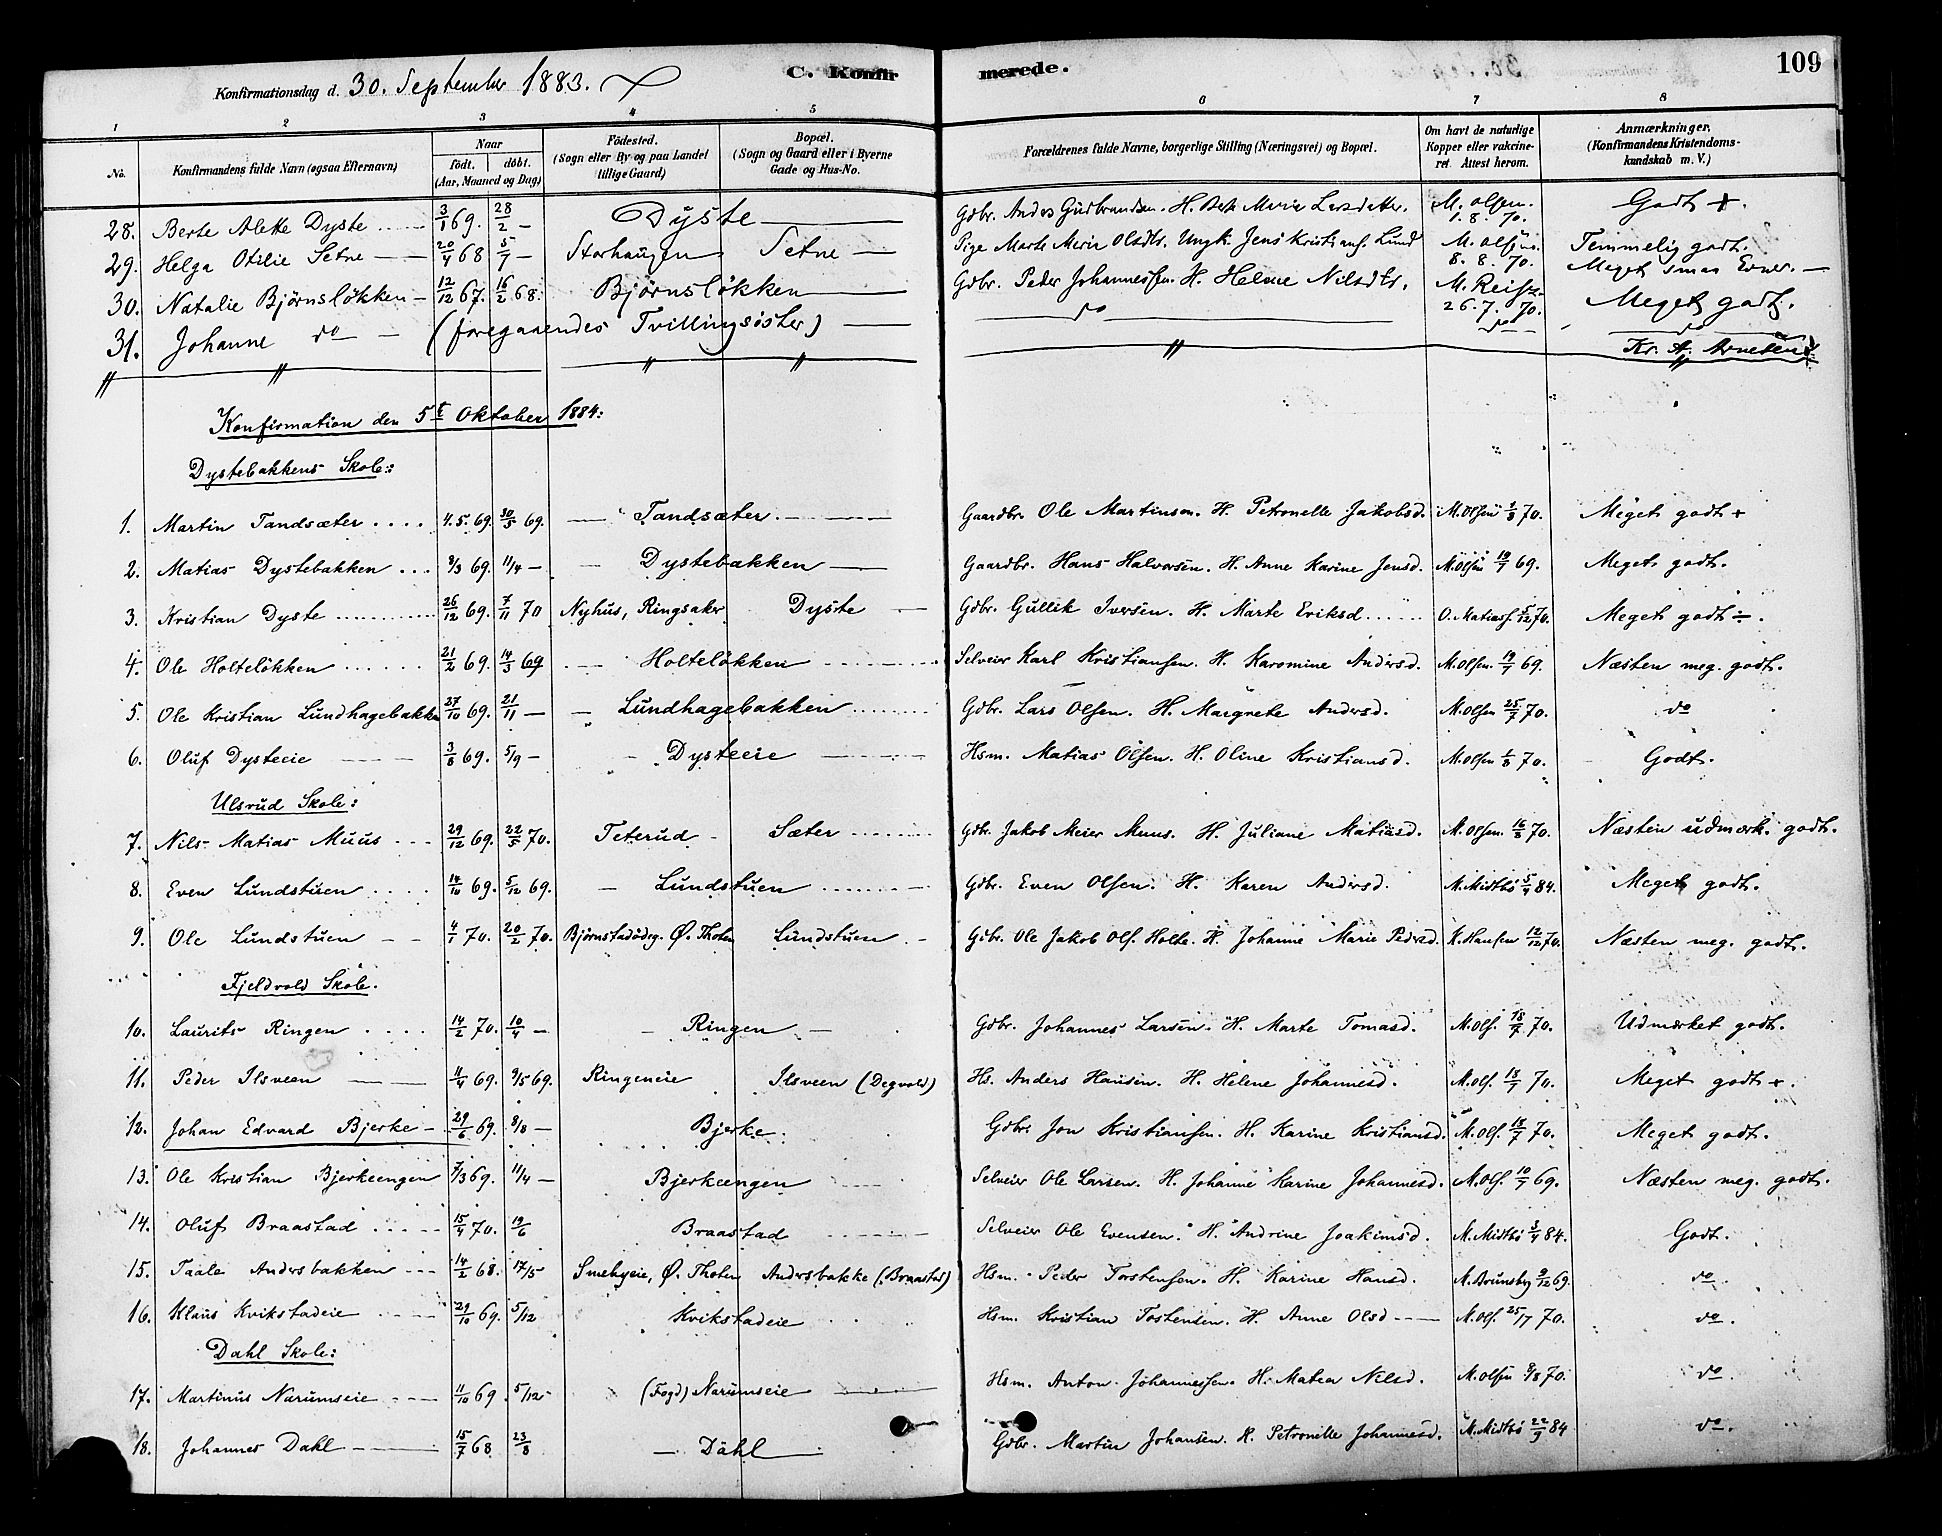 Konfirmationsdag d. 30. September 1883. C. Konfirmerede. 109
1 2 3 4 5 6 7 8
No. Konfirmandens fulde Navn (ogsaa Efternavn) Naar födt. döbt. (Aar, Maaned og Dag) Födested. (Sogn eller By og paa Landet tillige Gaard) Bopæl. (Sogn og Gaard eller i Byerne Gade og Hus-No. Forældrenes fulde Navne, borgerlige Stilling (Næringsvei) og Bopæl. Om havt de naturlige Kopper eller vakcineret. Attest herom. Anmærkninger. (Konfirmandens Kristendomskundskab m. V.)
28. Berte Alette Dyste 3/1 69. 28/2 — Dyste Gdbr. Anders Gudbrandsen. H. Berte Marie Larsdatter. M. Olsen. 1. 8. 70. Godt +.
29. Helga Otilie Setne 20/4 68 5/7 — Storhaugen Setne Pige Marte Marie Olsdtr. Ungk. Jens Kristians. Lund M. Olsen. 8. 8. 70. Temmelig godt. Meget smaa Evner. —
30. Natalie Björnslökken 12/12 67. 16/2 68. Björnslökken Gdbr. Peder Johannessen. H. Helene Nilsdtr. M. Reis 26. 7. 70. Meget godt.
31. Johanne do (foregaaendes Tvillingsöster) do do do
Kr. A. Arnesen
Konfirmation den 5te Oktober 1884:
Dystebakkens Skole:
1. Martin Tandsæter .... 4. 5. 69. 30/5 69. — Tandsæter. — Gaardbr. Ole Martinsen. H. Petronelle Jakobsd. M. Olsen 1/8 70. Meget godt +
2. Matias Dystebakken ... 8/3 69. 11/4 — Dystebakken — Gaardbr. Hans Halvorsen. H. Anne Karine Jensd. M. Olsen 19/7 69. Meget godt.
3. Kristian Dyste 26/12 69. 7/11 70 Nyhus, Ringsaker Dyste Gdbr. Gullik Iversen. H. Marte Eriksd O. Matias. 5/12 70. Meget godt ÷.
4. Ole Holtelökken 21/2 69. 14/3 69 — Holtelökken Selveier Karl Kristiansen. H. Karomine Andersd. M. Olsen. 19/7 69. Næsten meg. godt.
5. Ole Kristian Lundhagebakken 27/10 69. 21/11 — Lundhagebakken Gdbr. Lars Olsen. H. Margrete Andersd. M. Olsen 25/7 70. do
6. Oluf Dysteeie 3/8 69. 5/9 — Dysteeie Hsm. Matias Olsen. H. Oline Kristiansd. M. Olsen 1/8 70. Godt.
Ulsrud Skole:
7. Nils Matias Muus 29/12 69. 22/5 70. Teterud Sæter Gdbr. Jakob Meier Muus. H. Juliane Matiasd. M. Olsen. 16/8 70. Næsten udmærk. godt.
8. Even Lundstuen 14/10 69. 5/12 69. — Lundstuen Gdbr. Even Olsen. H. Karen Andersd. M. Midtbö 5/4 84. Meget godt.
9. Ole Lundstuen 4/1 70. 20/2 70. Björnstadödeg. Ø. Thoten Lundstuen Gdbr. Ole Jakob Ols. Holte. H. Johanne Marie Pedersd. K. Hansen 12/12 70. Næsten meg. godt.
Fjeldvold Skole.
10. Laurits Ringen 14/2 70. 10/4 — Ringen — Gdbr. Johannes Larsen. H. Marte Tomasd. M. Ols. 18/7 70. Udmærket godt.
11. Peder Ilsveen 11/4 69. 9/5 69. Ringeneie Ilsveen (Degvold) Hs. Anders Hansen. H. Helene Johannesd. M. Ols. 18/7 70. Meget godt +.
12. Johan Edvard Bjerke 29/6 69. 8/8 — Bjerke Gdbr. Jon Kristiansen. H. Karine Kristiansd. M. Ols. 18/7 70. Meget godt.
13. Ole Kristian Bjerkeengen 7/3 69. 11/4 — Bjerkeengen Selveier Ole Larsen. H. Johanne Karine Johannesd. M. Ols. 10/7 69. Næsten meg. godt.
14. Oluf Braastad 15/4 70. 19/6 Braastad Selveier Ole Evensen. H. Andrine Joakimsd. M. Midtbö 3/4 84. Godt.
15. Taale Andersbakken 14/2 68. 17/5 Smehyeie, Ø. Thoten Andersbakke (Braastad) Hsm. Peder Torstensen. H. Karine Hansd. A. Brunsby 9/12 69. do
16. Klaus Kvikstadeie 29/10 69. 5/12 Kvikstadeie Hsm. Kristian Tostensen. H. Anne Olsd M. Ols. 25/7 70. do.
Dahl Skole:
17. Martinus Narumseie 11/10 69. 5/12 (Fogd) Narumseie Hsm. Anton Johannessen. H. Matea Nilsd. M. Olsen 8/8 70. do.
18. Johannes Dahl 15/7 68 23/8 — Dahl Gdbr. Martin Johansen. H. Petronelle Johannesd. M. Midtbö 22/9 84 do.